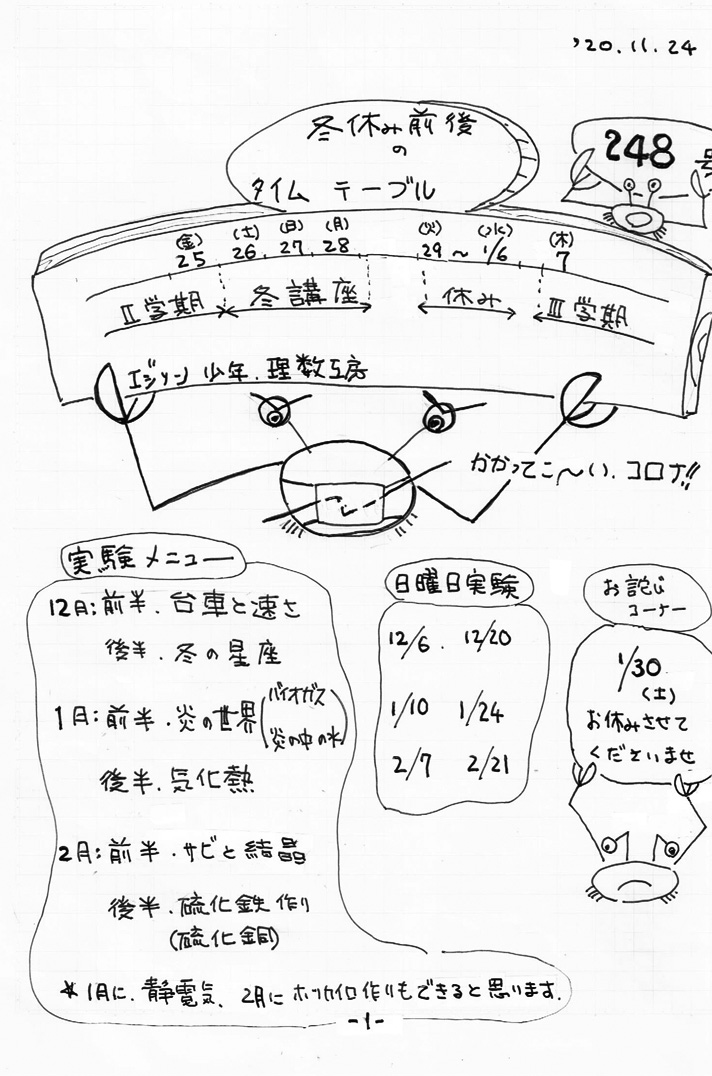 '20.11.24
248号
冬休み前後
の
タイム テーブル
(金) (土) (日) (月) (火) (水) (木)
25 26 27 28 29 〜 1/6 7
II学期 冬講座 休み III学期
エジソン少年.理数工房
かかってこ〜い.コロナ!!
実験メニュー
12月:前半.台車と速さ
後半.冬の星座
1月:前半.炎の世界(バイオガス
炎の中の水)
後半.気化熱
2月:前半.サビと結晶
後半.硫化鉄作り
(硫化銅)
*1月に.静電気、2月にホッカイロ作りもできると思います.
日曜日実験
12/6. 12/20
1/10 1/24
2/7 2/21
お詫び
コーナー
1/30
(土)
お休みさせて
くださいませ
-1-